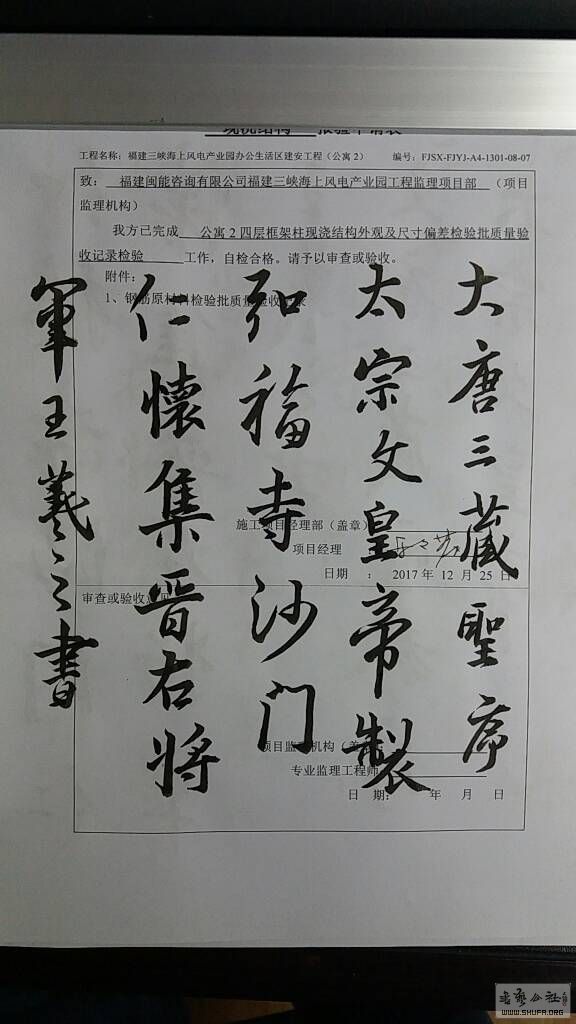 现浇结构 报验申请表
工程名称：福建三峡海上风电产业园办公生活区建安工程（公寓2） 编号：FJSX-FJYJ-A4-1301-08-07
致： 福建闽能咨询有限公司福建三峡海上风电产业园工程监理项目部 （项目
监理机构）
我方已完成 公寓2四层框架柱现浇结构外观及尺寸偏差检验批质量验
收记录检验 工作，自检合格。请予以审查或验收。
附件：
1、钢筋原材料检验批质量验收记录
施工项目经理部（盖章）
项目经理
日期 ： 2017年 12 月 25 日
审查或验收意见
项目监理机构（盖章）
专业监理工程师
日 期： 年 月 日
大唐三藏聖序
太宗文皇帝製
弘福寺沙门
仁懷集晋右將
軍王羲之書
WWW.SHUFA.ORG